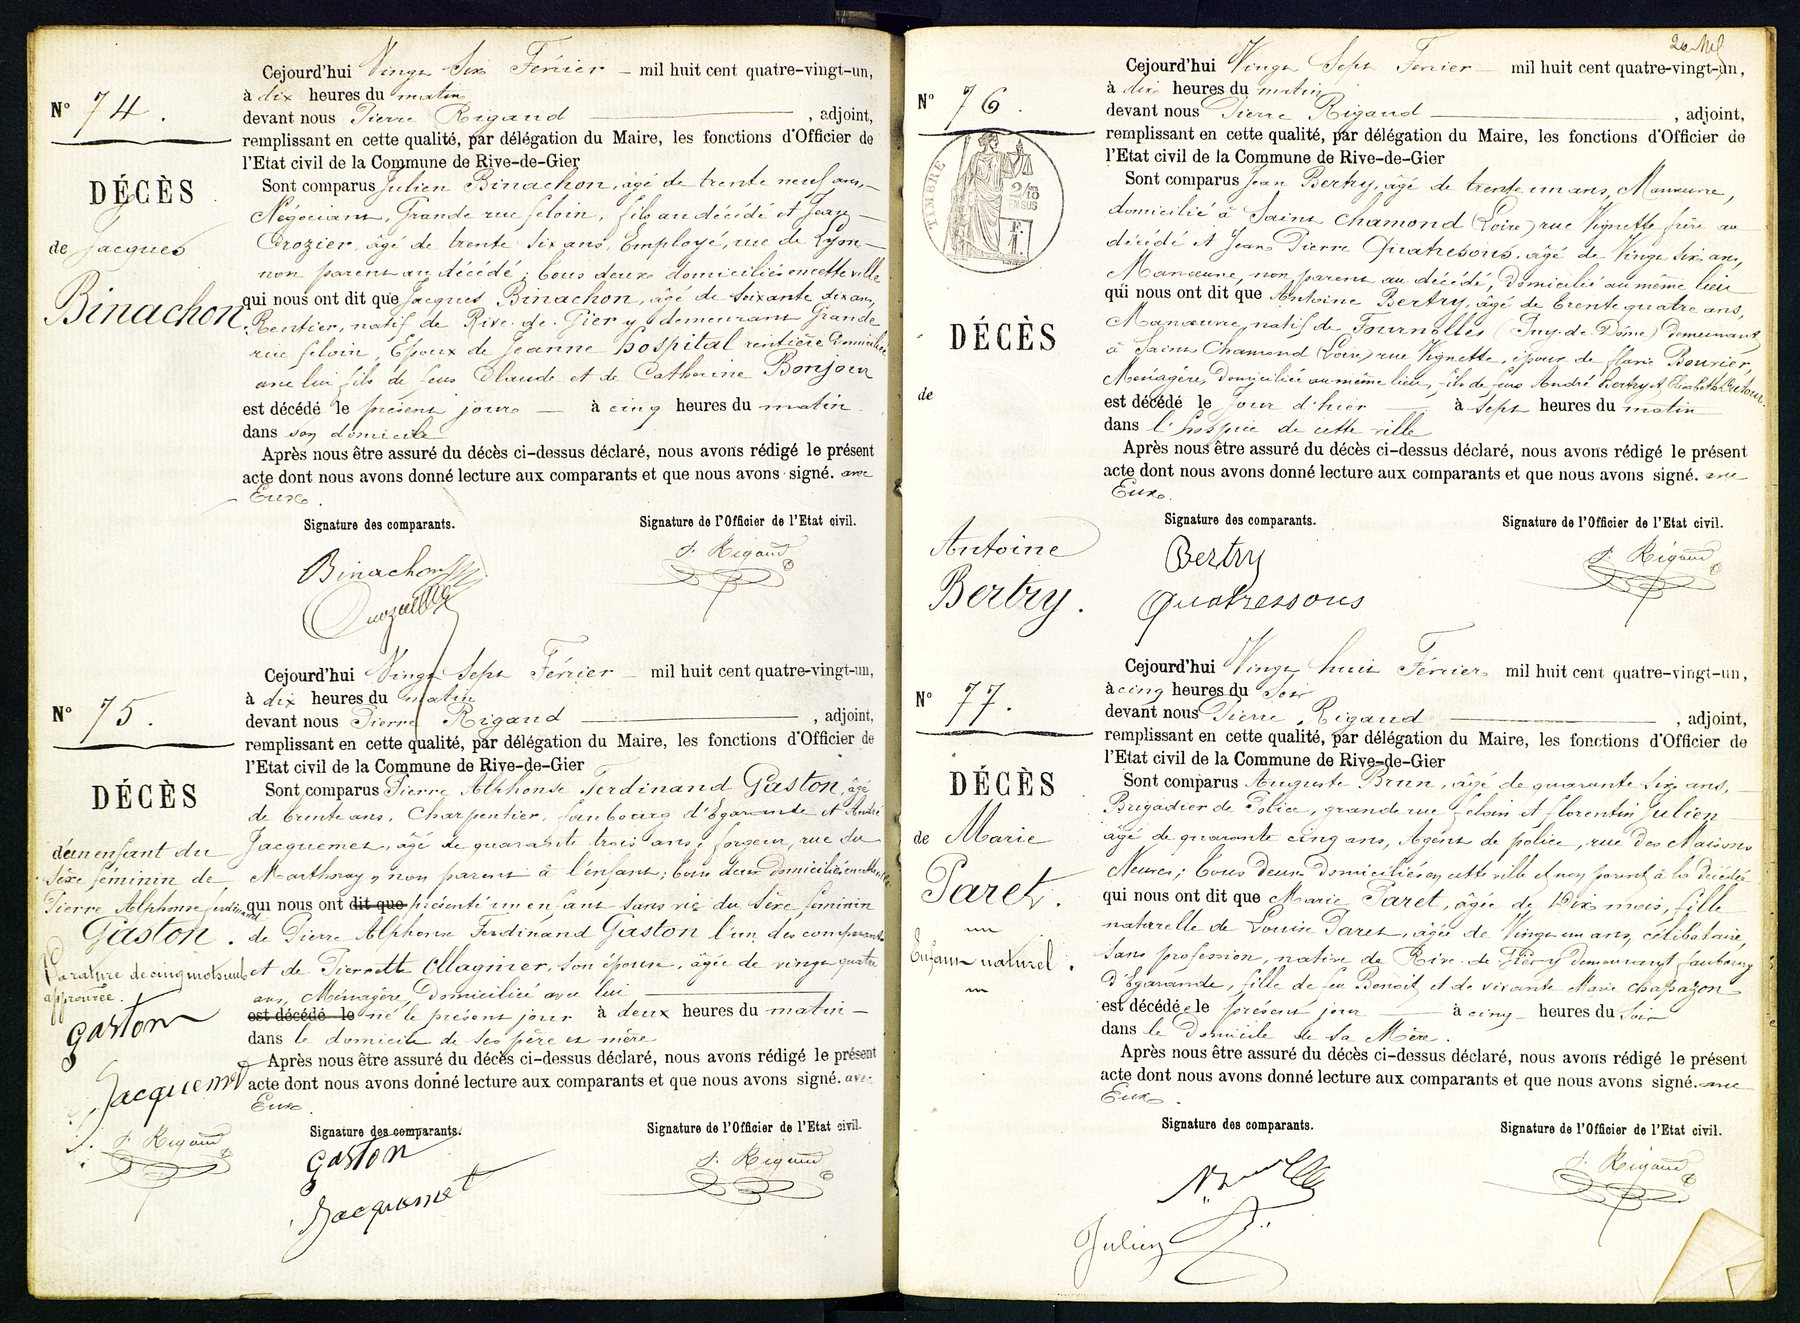 Cejourd'hui Vingt Six Février - mil huit cent quatre-vingt-un,
à dix heures du matin
N° 74.
devant nous Pierre Rigaud , adjoint,
remplissant en cette qualité, par délégation du Maire, les fonctions d'Officier de
l'Etat civil de la Commune de Rive-de-Gier
DÉCÈS
de Jacques
Binachon
Sont comparus Julien Binachon, âgé de trente neuf ans,
Négociant, Grande rue feloin, fils au décédé et Jean
Crozier, âgé de trente six ans, Employé, rue de Lyon
non parent au décédé; tous deux domiciliés en cette ville
qui nous ont dit que Jacques Binachon, âgé de soixante dix ans,
Rentier, natif de Rive-de-Gier y demeurant Grande
rue feloin, Époux de Jeanne hospital rentière domiciliée
avec lui, fils de feus Claude et de Catherine Bonjour
est décédé le présent jour à cinq heures du matin
dans son domicile
Après nous être assuré du décès ci-dessus déclaré, nous avons rédigé le présent
acte dont nous avons donné lecture aux comparants et que nous avons signé. avec
Eux.
Signature des comparants. Signature de l'Officier de l'Etat civil.
Binachon
P. Rigaud
Cejourd'hui Vingt Sept Février - mil huit cent quatre-vingt-un,
à dix heures du matin
N° 75.
devant nous Pierre Rigaud , adjoint,
remplissant en cette qualité, par délégation du Maire, les fonctions d'Officier de
l'Etat civil de la Commune de Rive-de-Gier
DÉCÈS
d'un enfant du
Sexe féminin de
Pierre Alphonse ferdinand
Gaston.
Rature de cinq mots nuls
approuvée.
Gaston
Jacquemet
P. Rigaud
Sont comparus Pierre Alphonse Ferdinand Gaston, âgé
de trente ans, Charpentier, faubourg d'Egarande et André
Jacquemet, âgé de quarante trois ans, forgeur, rue du
Marthoray, non parent à l'enfant; tous deux domiciliés en cette ville
qui nous ont dit que présenté un enfant sans vie du Sexe féminin
de Pierre Alphonse Ferdinand Gaston l'un des comparants
et de Pierrette Ollagnier, son épouse, âgée de vingt quatre
ans, Ménagère, Domiciliée avec lui
est décédé le né le présent jour à deux heures du matin -
dans le domicile de ses père et mère
Après nous être assuré du décès ci-dessus déclaré, nous avons rédigé le présent
acte dont nous avons donné lecture aux comparants et que nous avons signé. avec
Eux.
Signature des comparants. Signature de l'Officier de l'Etat civil.
Gaston
Jacquemet
P. Rigaud
Cejourd'hui Vingt Sept Février - mil huit cent quatre-vingt-un,
à dix heures du matin
N° 76.
devant nous Pierre Rigaud , adjoint,
remplissant en cette qualité, par délégation du Maire, les fonctions d'Officier de
l'Etat civil de la Commune de Rive-de-Gier
TIMBRE
2/10
EN SUS
DÉCÈS
de
Antoine
Bertry.
Sont comparus Jean Bertry, âgé de trente un ans, Manœuvre,
domicilié à Saint Chamond (Loire) rue Vignette frère au
décédé et Jean Pierre Quatresous, âgé de Vingt six ans,
Manœuvre, non parent au décédé, Domicilié au même lieu
qui nous ont dit que Antoine Bertry, âgé de trente quatre ans,
Manœuvre, natif de Fournolles (Puy-de-Dôme) demeurant
à Saint Chamond (Loire) rue Vignette, époux de Marie Bourier,
Ménagère, Domiciliée au même lieu, fils de feus André Bertry et Elisabeth
est décédé le jour d'hier à Sept heures du matin
dans l'hospice de cette ville
Après nous être assuré du décès ci-dessus déclaré, nous avons rédigé le présent
acte dont nous avons donné lecture aux comparants et que nous avons signé. avec
Eux.
Signature des comparants. Signature de l'Officier de l'Etat civil.
Bertry
Quatressous
P. Rigaud
Cejourd'hui Vingt huit Février mil huit cent quatre-vingt-un,
à cinq heures du Soir
N° 77.
devant nous Pierre Rigaud , adjoint,
remplissant en cette qualité, par délégation du Maire, les fonctions d'Officier de
l'Etat civil de la Commune de Rive-de-Gier
DÉCÈS
de Marie
Paret.
Enfant naturel.
Sont comparus Auguste Brun, âgé de quarante Six ans,
Brigadier de Police, grande rue feloin et florentin Julien
âgé de quarante cinq ans, Agent de police, rue des Maisons
Neuves; tous deux Domiciliés en cette ville et non parent à la décédée
qui nous ont dit que Marie Paret, âgée de Dix mois, fille
naturelle de Louise Paret, âgée de Vingt un ans, célibataire,
Sans profession, native de Rive-de-Gier y demeurant faubourg
d'Egarande, fille de feu Benoit et de vivante Marie Chapazon
est décédée le présent jour à cinq heures du Soir
dans le Domicile de sa Mère.
Après nous être assuré du décès ci-dessus déclaré, nous avons rédigé le présent
acte dont nous avons donné lecture aux comparants et que nous avons signé. avec
Eux.
Signature des comparants. Signature de l'Officier de l'Etat civil.
Julien
P. Rigaud